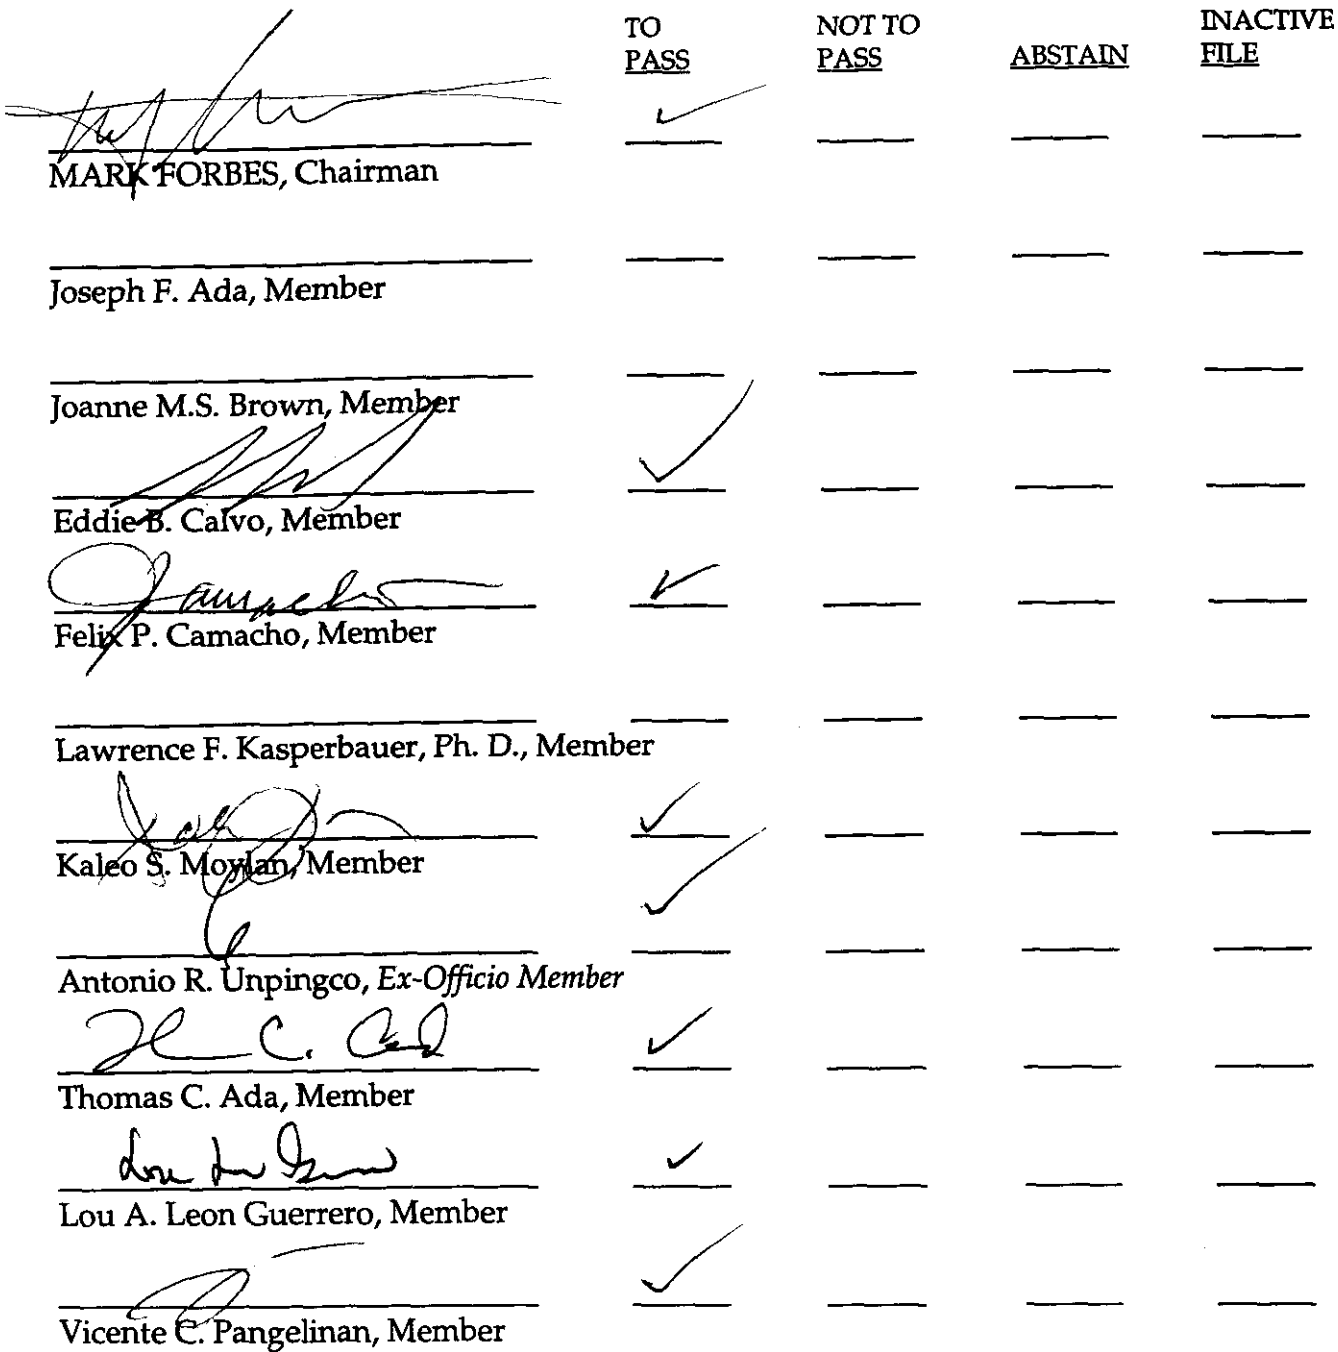 TO NOT TO INACTIVE
PASS PASS ABSTAIN FILE
MARK FORBES, Chairman
Joseph F. Ada, Member
Joanne M.S. Brown, Member
Eddie B. Calvo, Member
Felix P. Camacho, Member
Lawrence F. Kasperbauer, Ph. D., Member
Kaleo S. Moylan, Member
Antonio R. Unpingco, Ex-Officio Member
Thomas C. Ada, Member
Lou A. Leon Guerrero, Member
Vicente C. Pangelinan, Member